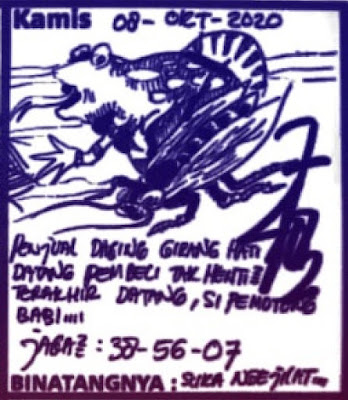 Kamis 08-OKT-2020
PENJUAL DAGING GIRANG HATI
DATANG PEMBELI TAK HENTI2
TERAKHIR DATANG, SI PEMOTONG
BABI....
JAGA2 : 38-56-07
BINATANGNYA : SUKA